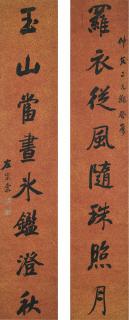 羅衣從風隨珠照月
玉山當晝氷鑑澄秋
左宗棠